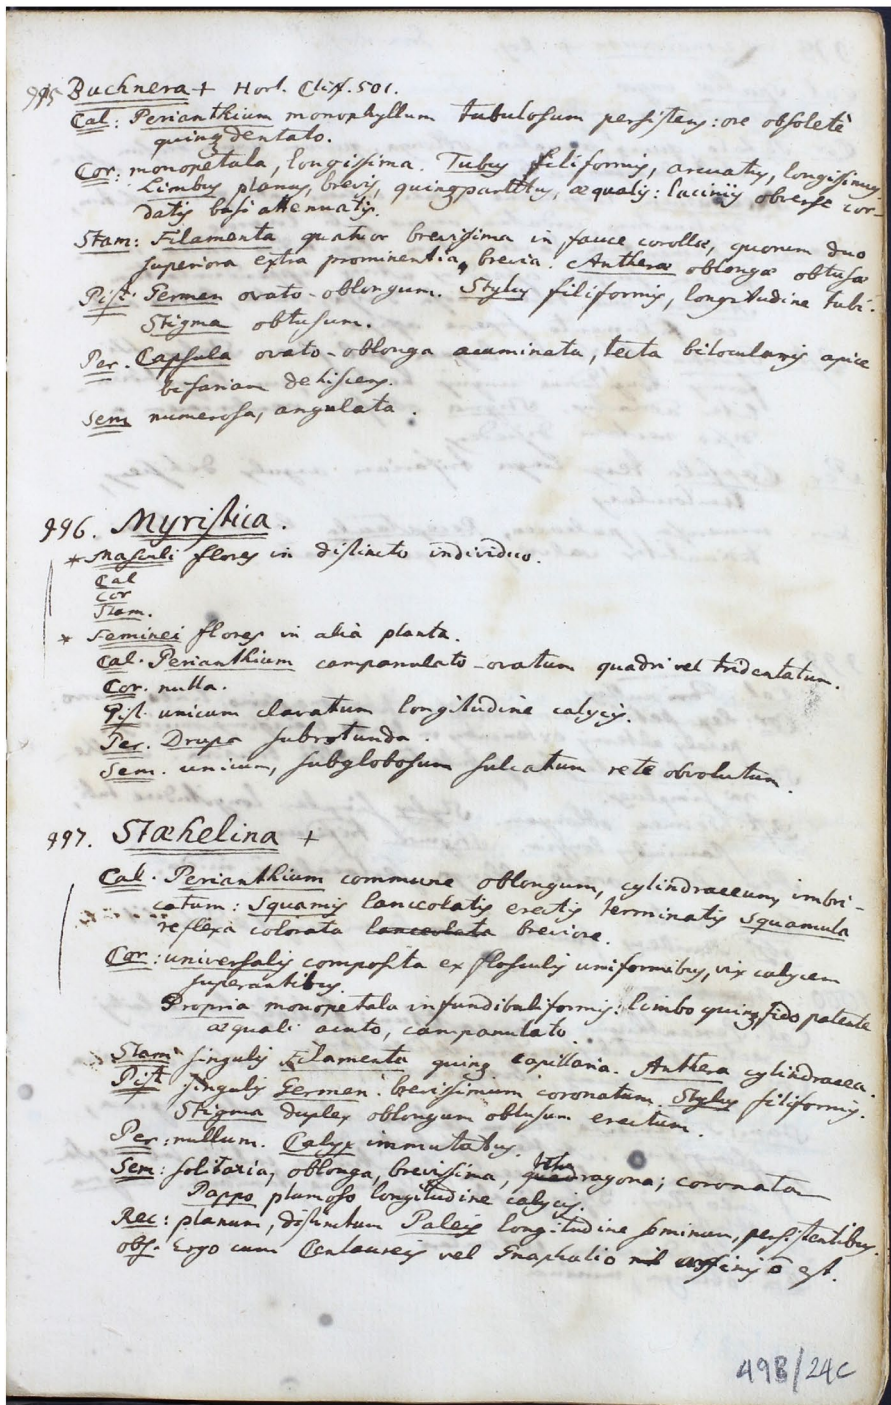 995 Buchnera + Hort. Cliff. 501.
Cal: Perianthium monophyllum tubulosum persistens: ore obsoletè
quinq dentato.
Cor: monopetala, longissima. Tubus filiformis, arcuatus, longissimus.
Limbus planus, brevis, quinqpartitus, æqualis: laciniis obverse cor-
datis basi attenuatis.
Stam: Filamenta quatuor brevissima in fauce corollæ, quorum duo
superiora extra prominentia, brevia. Antheræ oblongæ obtusæ
Pist. Germen ovato-oblongum. Stylus filiformis, longitudine tubi.
Stigma obtusum.
Per. Capsula ovato-oblonga acuminata, tecta bilocularis apice
bifariam dehiscens.
Sem numerosa, angulata.
996. Myristica.
* Masculi flores in distincto individuo.
Cal
Cor
Stam.
* Feminei flores in alia planta.
Cal. Perianthium campanulato-ovatum quadri vel tridentatum.
Cor. nulla.
Pist. unicum clavatum longitudine calycis.
Per. Drupa subrotunda.
Sem. unicum, subglobosum sulcatum rete obvolutum.
997. Stæhelina +
Cal. Perianthium commune oblongum, cylindraceum, imbri-
catum: Squamis lanceolatis erectis terminatis Squamula
reflexa colorata lanceolata breviore.
Cor: universalis composita ex flosculis uniformibus, vix calycem
superantibus.
Propria monopetala infundibuliformis: limbo quinqfido patente
æquali acuto, campanulato
Stam singulis Filamenta quinq capillaria. Anthera cylindracea.
Pist singulis Germen brevissimum coronatum. Stylus filiformis.
Stigma duplex oblongum obtusum erectum.
Per: nullum. Calyx immutatus.
Sem: solitaria, oblonga, brevissima, tetragona; coronata
Pappo plumoso longitudine calycis.
Rec: planum, distinctum Paleis longitudine seminum, persistentibus.
obs. Ergo cum Centaureis vel Gnaphalio affinis est.
49B/24c